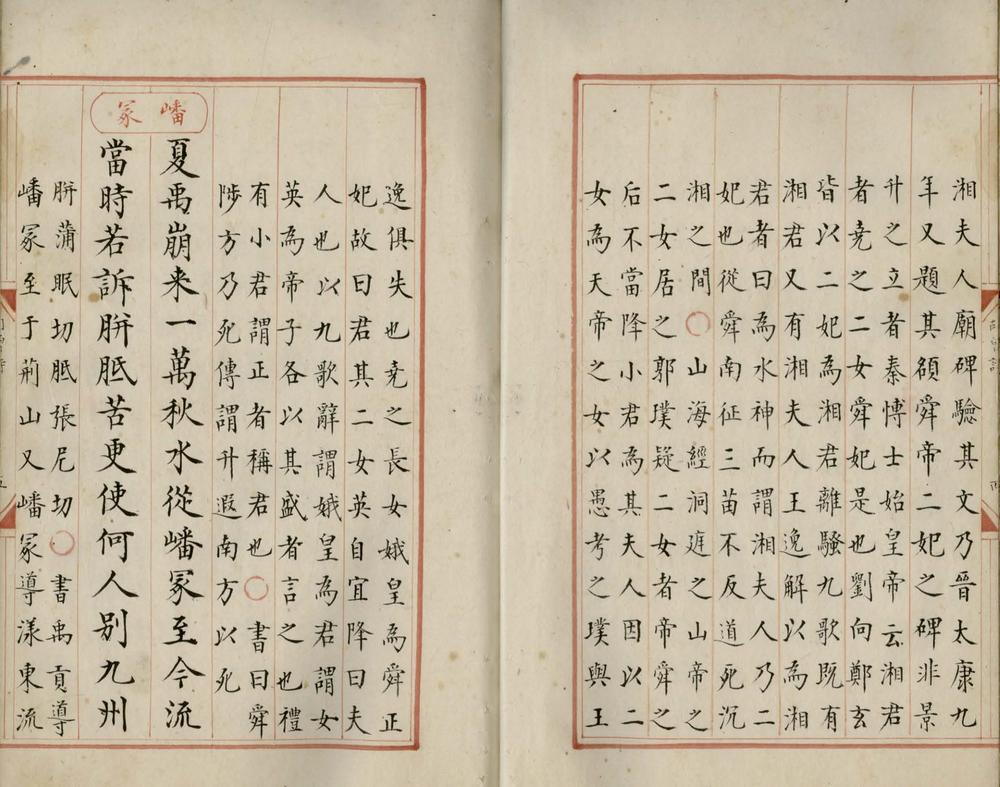 湘夫人廟碑驗其文乃晉太康九
年又題其額舜帝二妃之碑非景
升之立者秦博士始皇帝云湘君
者尭之二女舜妃是也劉向鄭玄
皆以二妃為湘君離騷九歌既有
湘君又有湘夫人王逸解以為湘
君者曰為水神而謂湘夫人乃二
妃也從舜南征三苗不反道死沉
湘之間〇山海經洞庭之山帝之
二女居之郭璞疑二女者帝舜之
后不當降小君為其夫人因以二
女為天帝之女以愚考之璞與王
逸俱失也尭之長女娥皇為舜正
妃故曰君其二女英自宜降曰夫
人也以九歌辭謂娥皇為君謂女
英為帝子各以其盛者言之也禮
有小君謂正者稱君也〇書曰舜
陟方乃死傳謂升遐南方以死
嶓冢
夏禹崩来一萬秋水從嶓冢至今流
當時若訴胼胝苦更使何人別九州
胼蒲眠切胝張尼切〇書禹貢導
嶓冢至于荊山又嶓冢導漾東流